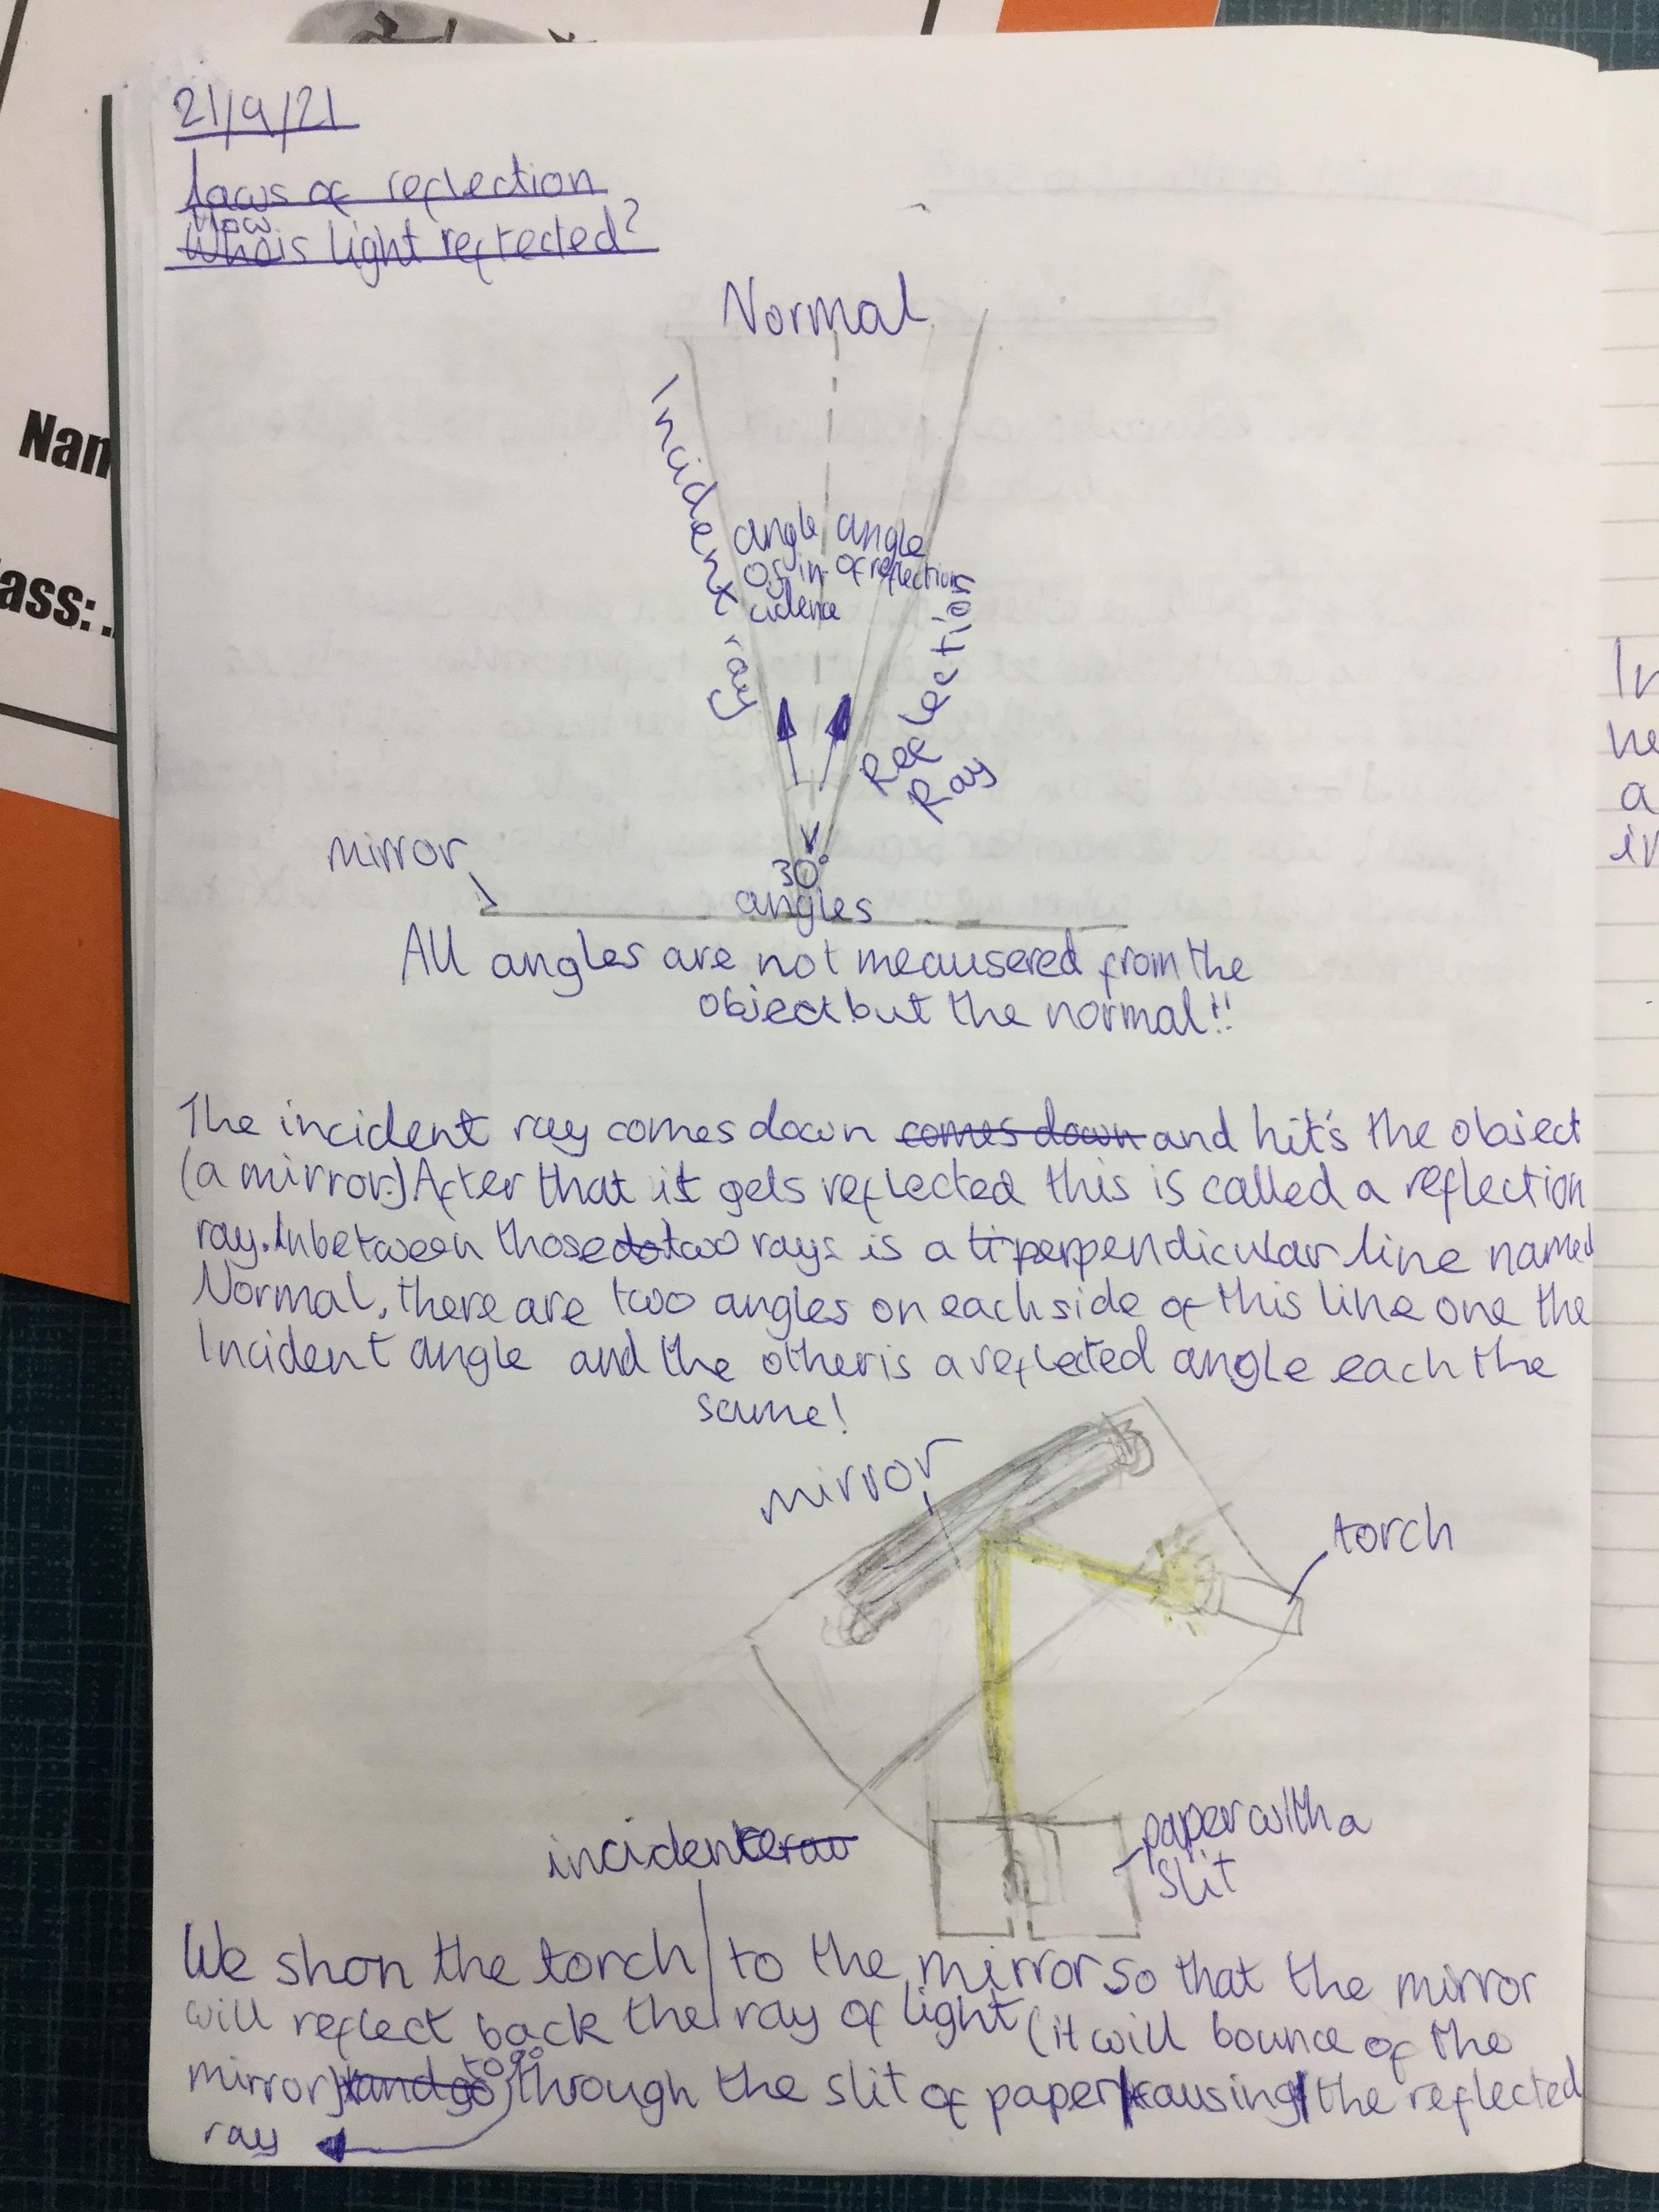 21/9/21
laws of reflection
How
Who is light reflected?
Normal
Incident ray
angle of in- cidence
angle of reflection
Reflection Ray
30°
angles
mirror
All angles are not meausered from the
object but the normal!!
The incident ray comes down comes down and hit's the object
(a mirror.) After that it gets reflected this is called a reflection
ray. Inbetween those do two rays is a ti perpendicular line named
Normal, there are two angles on each side of this line one the
Incident angle and the other is a reflected angle each the
same!
mirror
torch
paper with a
slit
incident
We shon the torch to the mirror so that the mirror
will reflect back the ray of light (it will bounce of the
to go
mirror) and go through the slit of paper causing the reflected
ray
Nam
ass: .
In
he
a
in